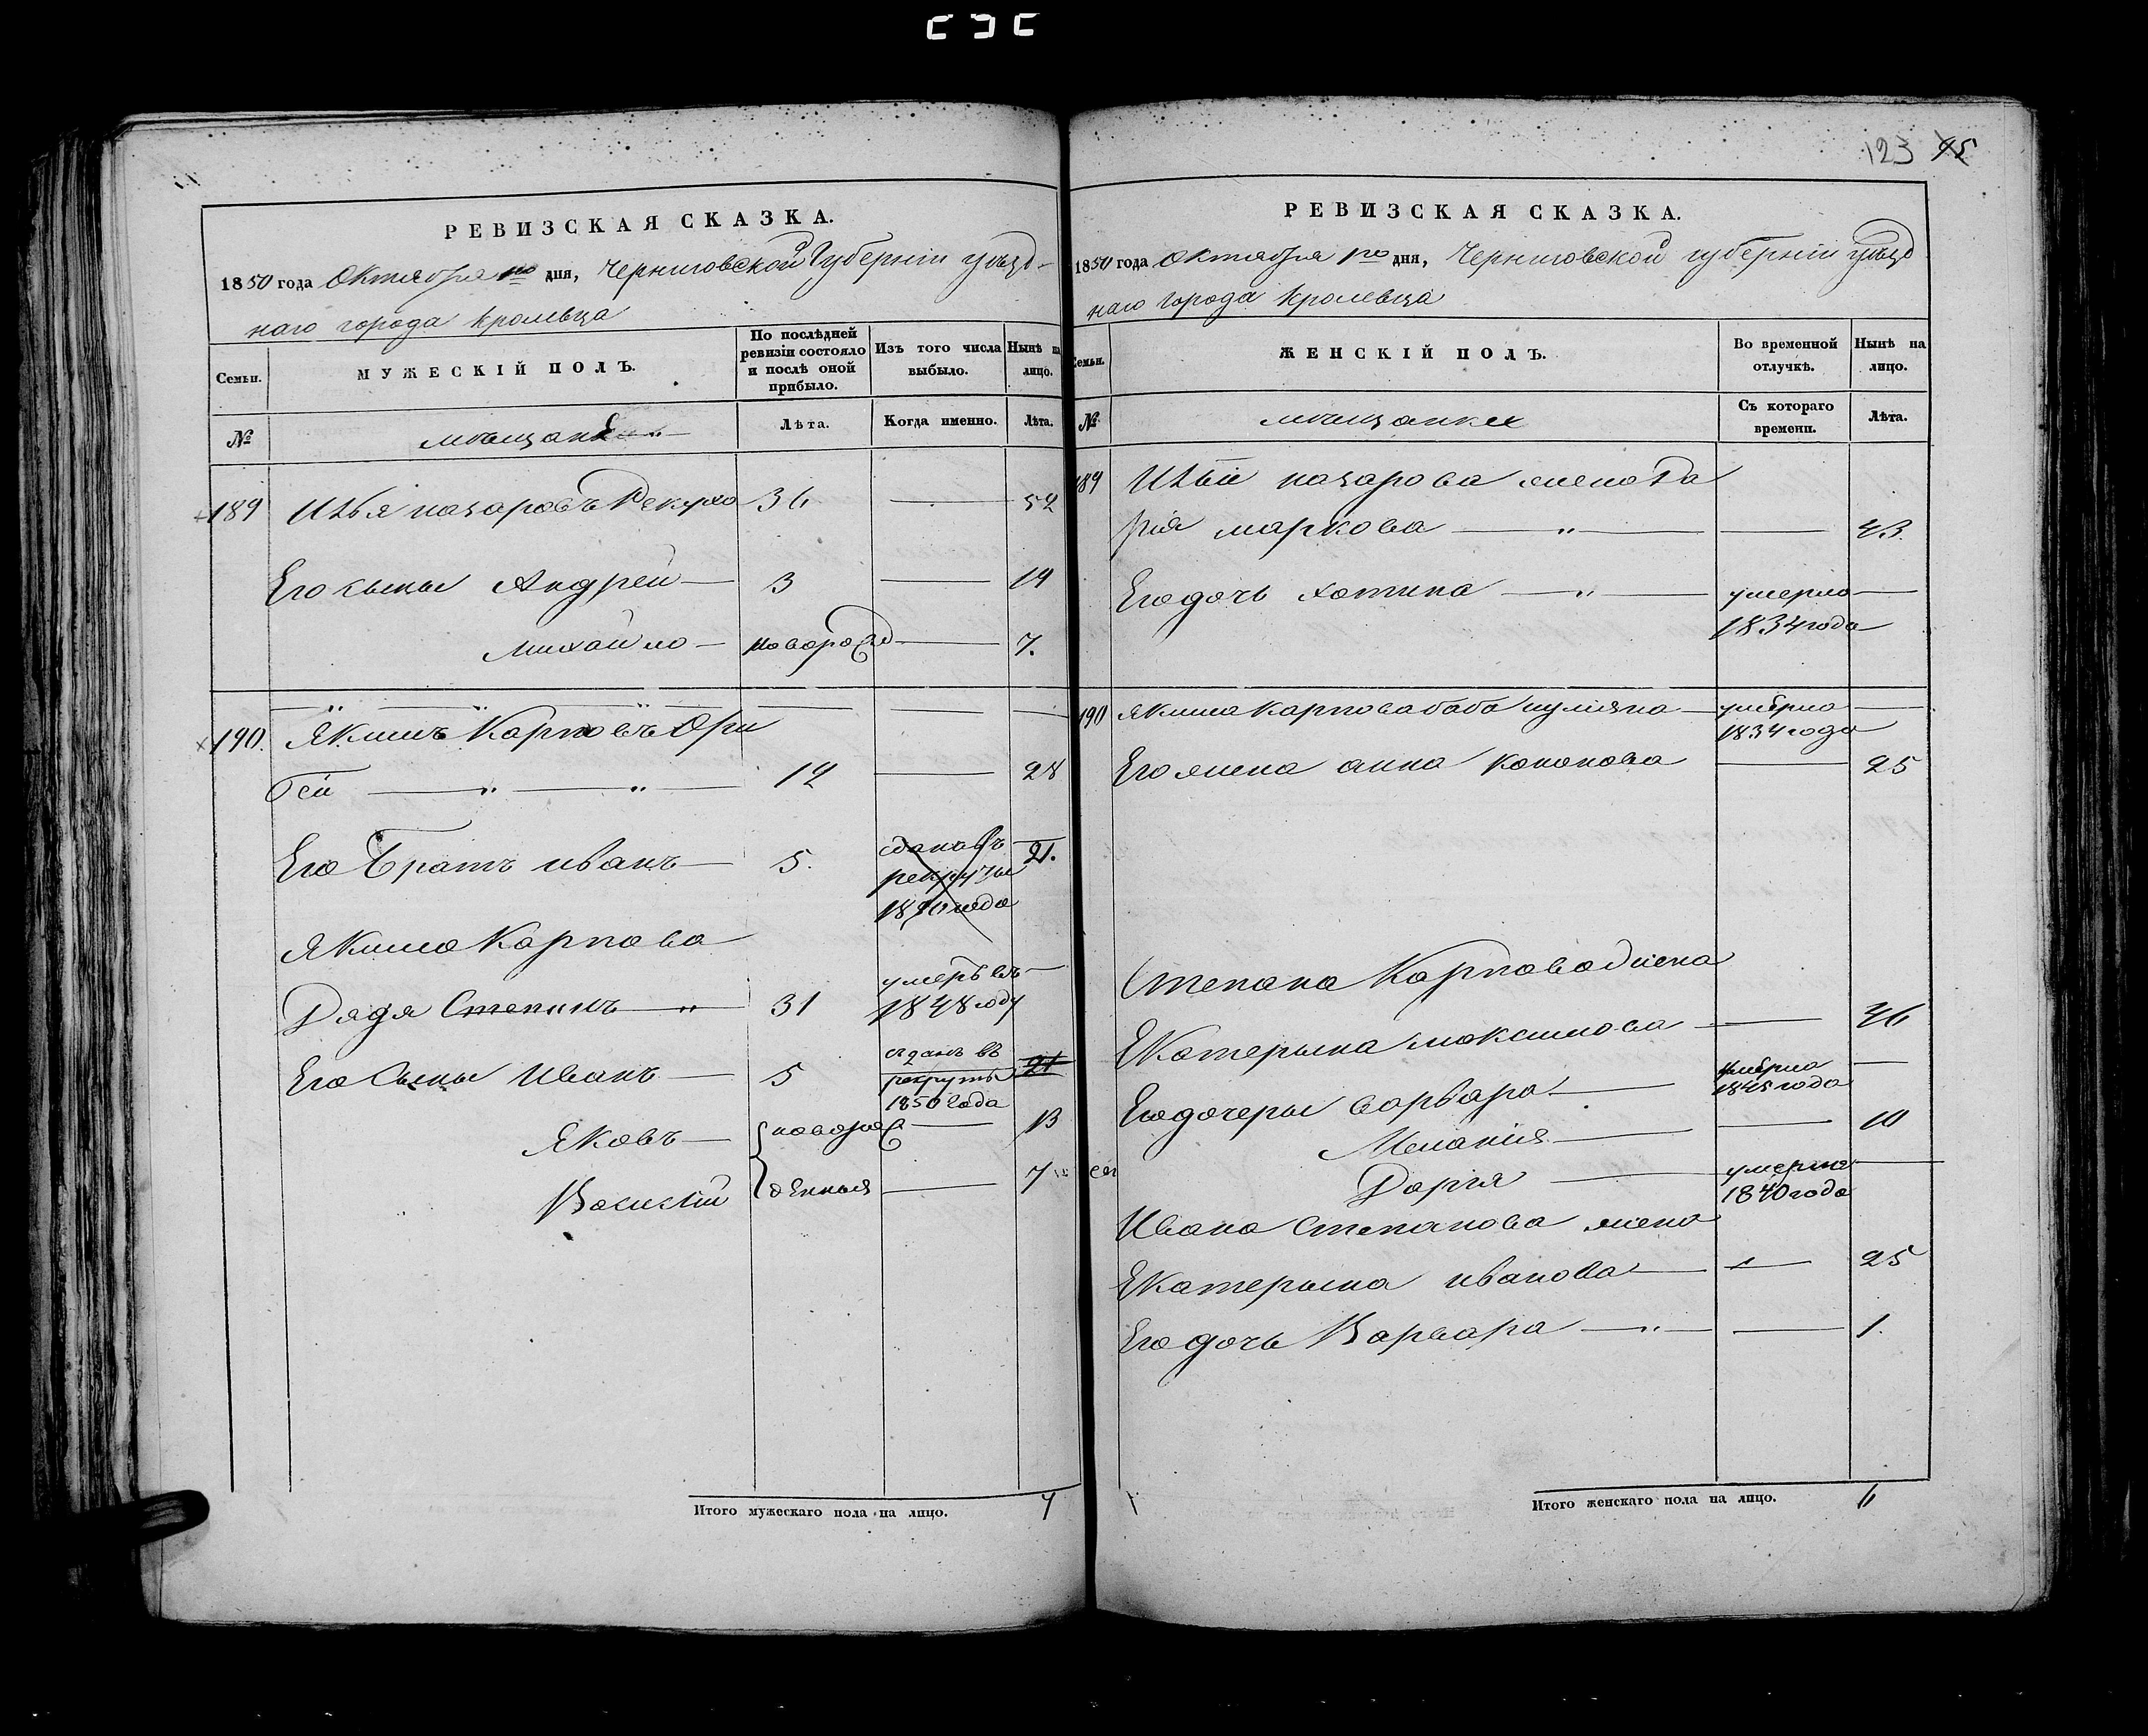 123 95
РЕВИЗСКАЯ СКАЗКА.
1850 года Октября 1го дня, Черниговской Губерніи уѣзд-
наго города Кролевца
Семьи.
МУЖЕСКІЙ ПОЛЪ.
По послѣдней ревизіи состояло и послѣ оной прибыло.
Изъ того числа выбыло.
Нынѣ на лицо.
№
мѣщане
Лѣта.
Когда именно.
Лѣта.
189 Илья назаровъ Рекухо 36 52
Его сыны Андрей 3 19
михайло новорожд 7.
190. Якимъ Карповъ Ори
бей 12 28
Его Братъ иванъ 5. сданъ въ 21.
рекруты
1840 года
Якима Карпова
умеръ въ
Дядя Степанъ 31 1848 году
Его Сыны Иванъ 5 сданъ въ 21
рекруты
1850 года
Яковъ новорож 13
Василій денныя 7
Итого мужескаго пола на лицо. 7
РЕВИЗСКАЯ СКАЗКА.
1850 года октября 1го дня, Черниговской губерніи уѣзд
наго города Кролевца
Семьи.
ЖЕНСКІЙ ПОЛЪ.
Во временной отлучкѣ.
Нынѣ на лицо.
№
мѣщанки
Съ котораго времени.
Лѣта.
189 Ильи назарова жена
рія маркова 43.
Его дочь хотина умерла
1834 года
190 якима карпова баба улияна умерла
1834 года
Его жена анна кононова 25
Степана Карпова жена
Екатерына максимова 46
Его дочеры варвара умерла
1845 года
Меланія 10
Дарія умерла
1840 года
Ивана Степанова жена
Екатерына иванова 25
Его дочь Варвара 1.
Итого женскаго пола на лицо. 6